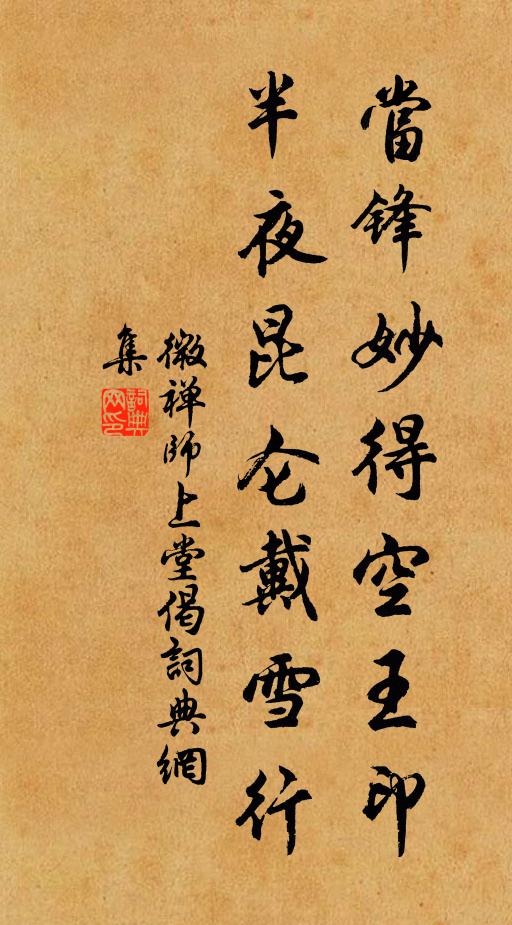 當锋妙得空王印
半夜昆仑戴雪行
徽禅師上堂偈詞典網
集
詞典
网印